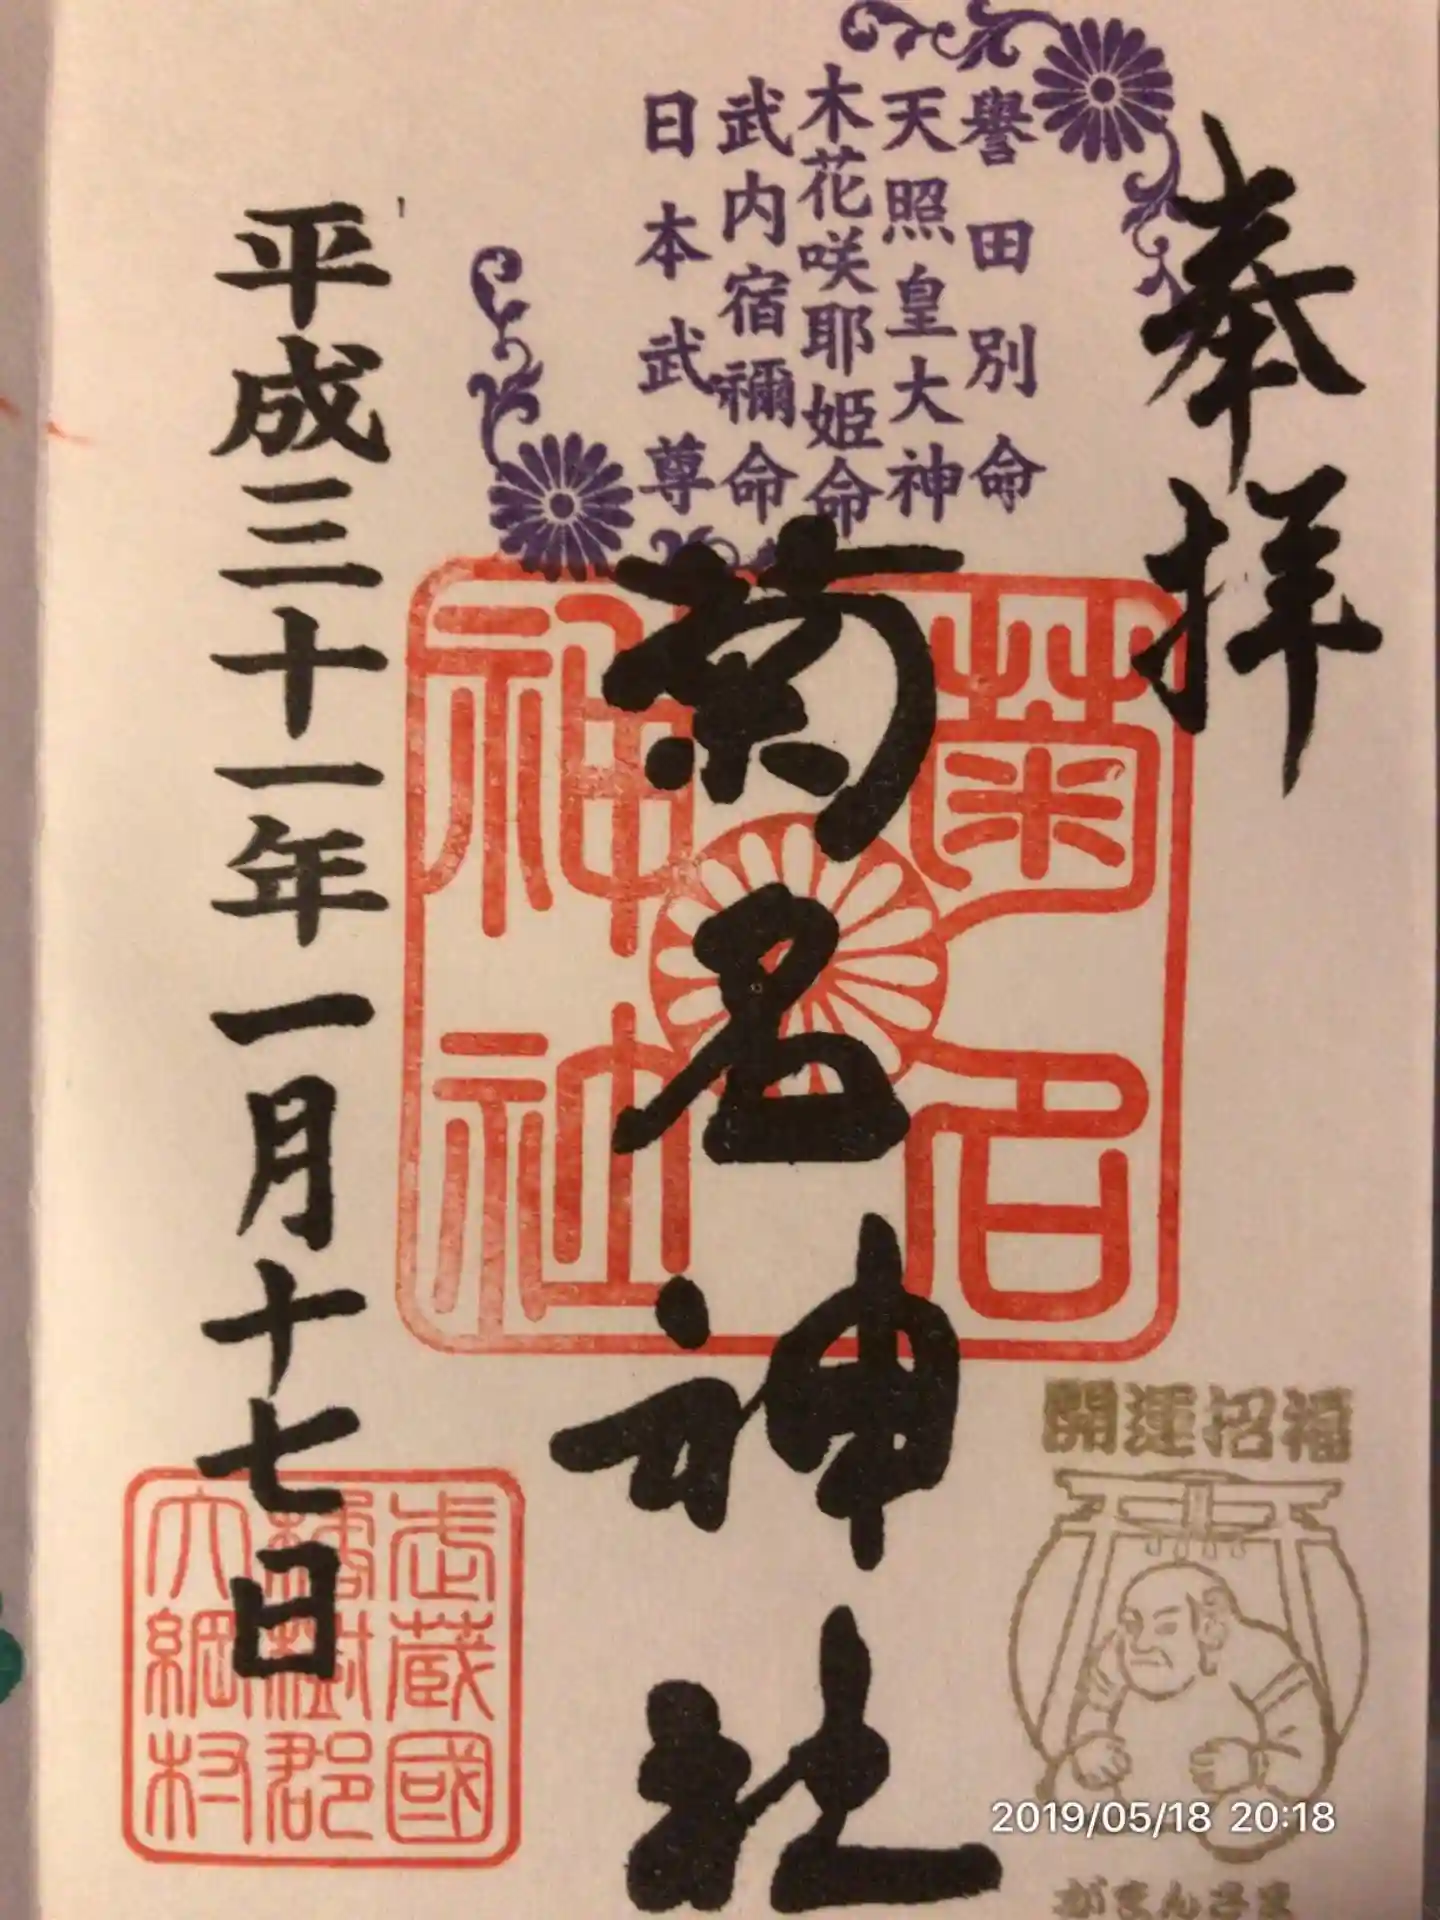 奉拝
譽田別命
天照皇大神
木花咲耶姫命
武内宿禰命
日本武尊
菊名神社
菊名
神社
平成三十一年一月十七日
武蔵國
橘樹郡
大綱村
開運招福
がまんさま
2019/05/18 20:18